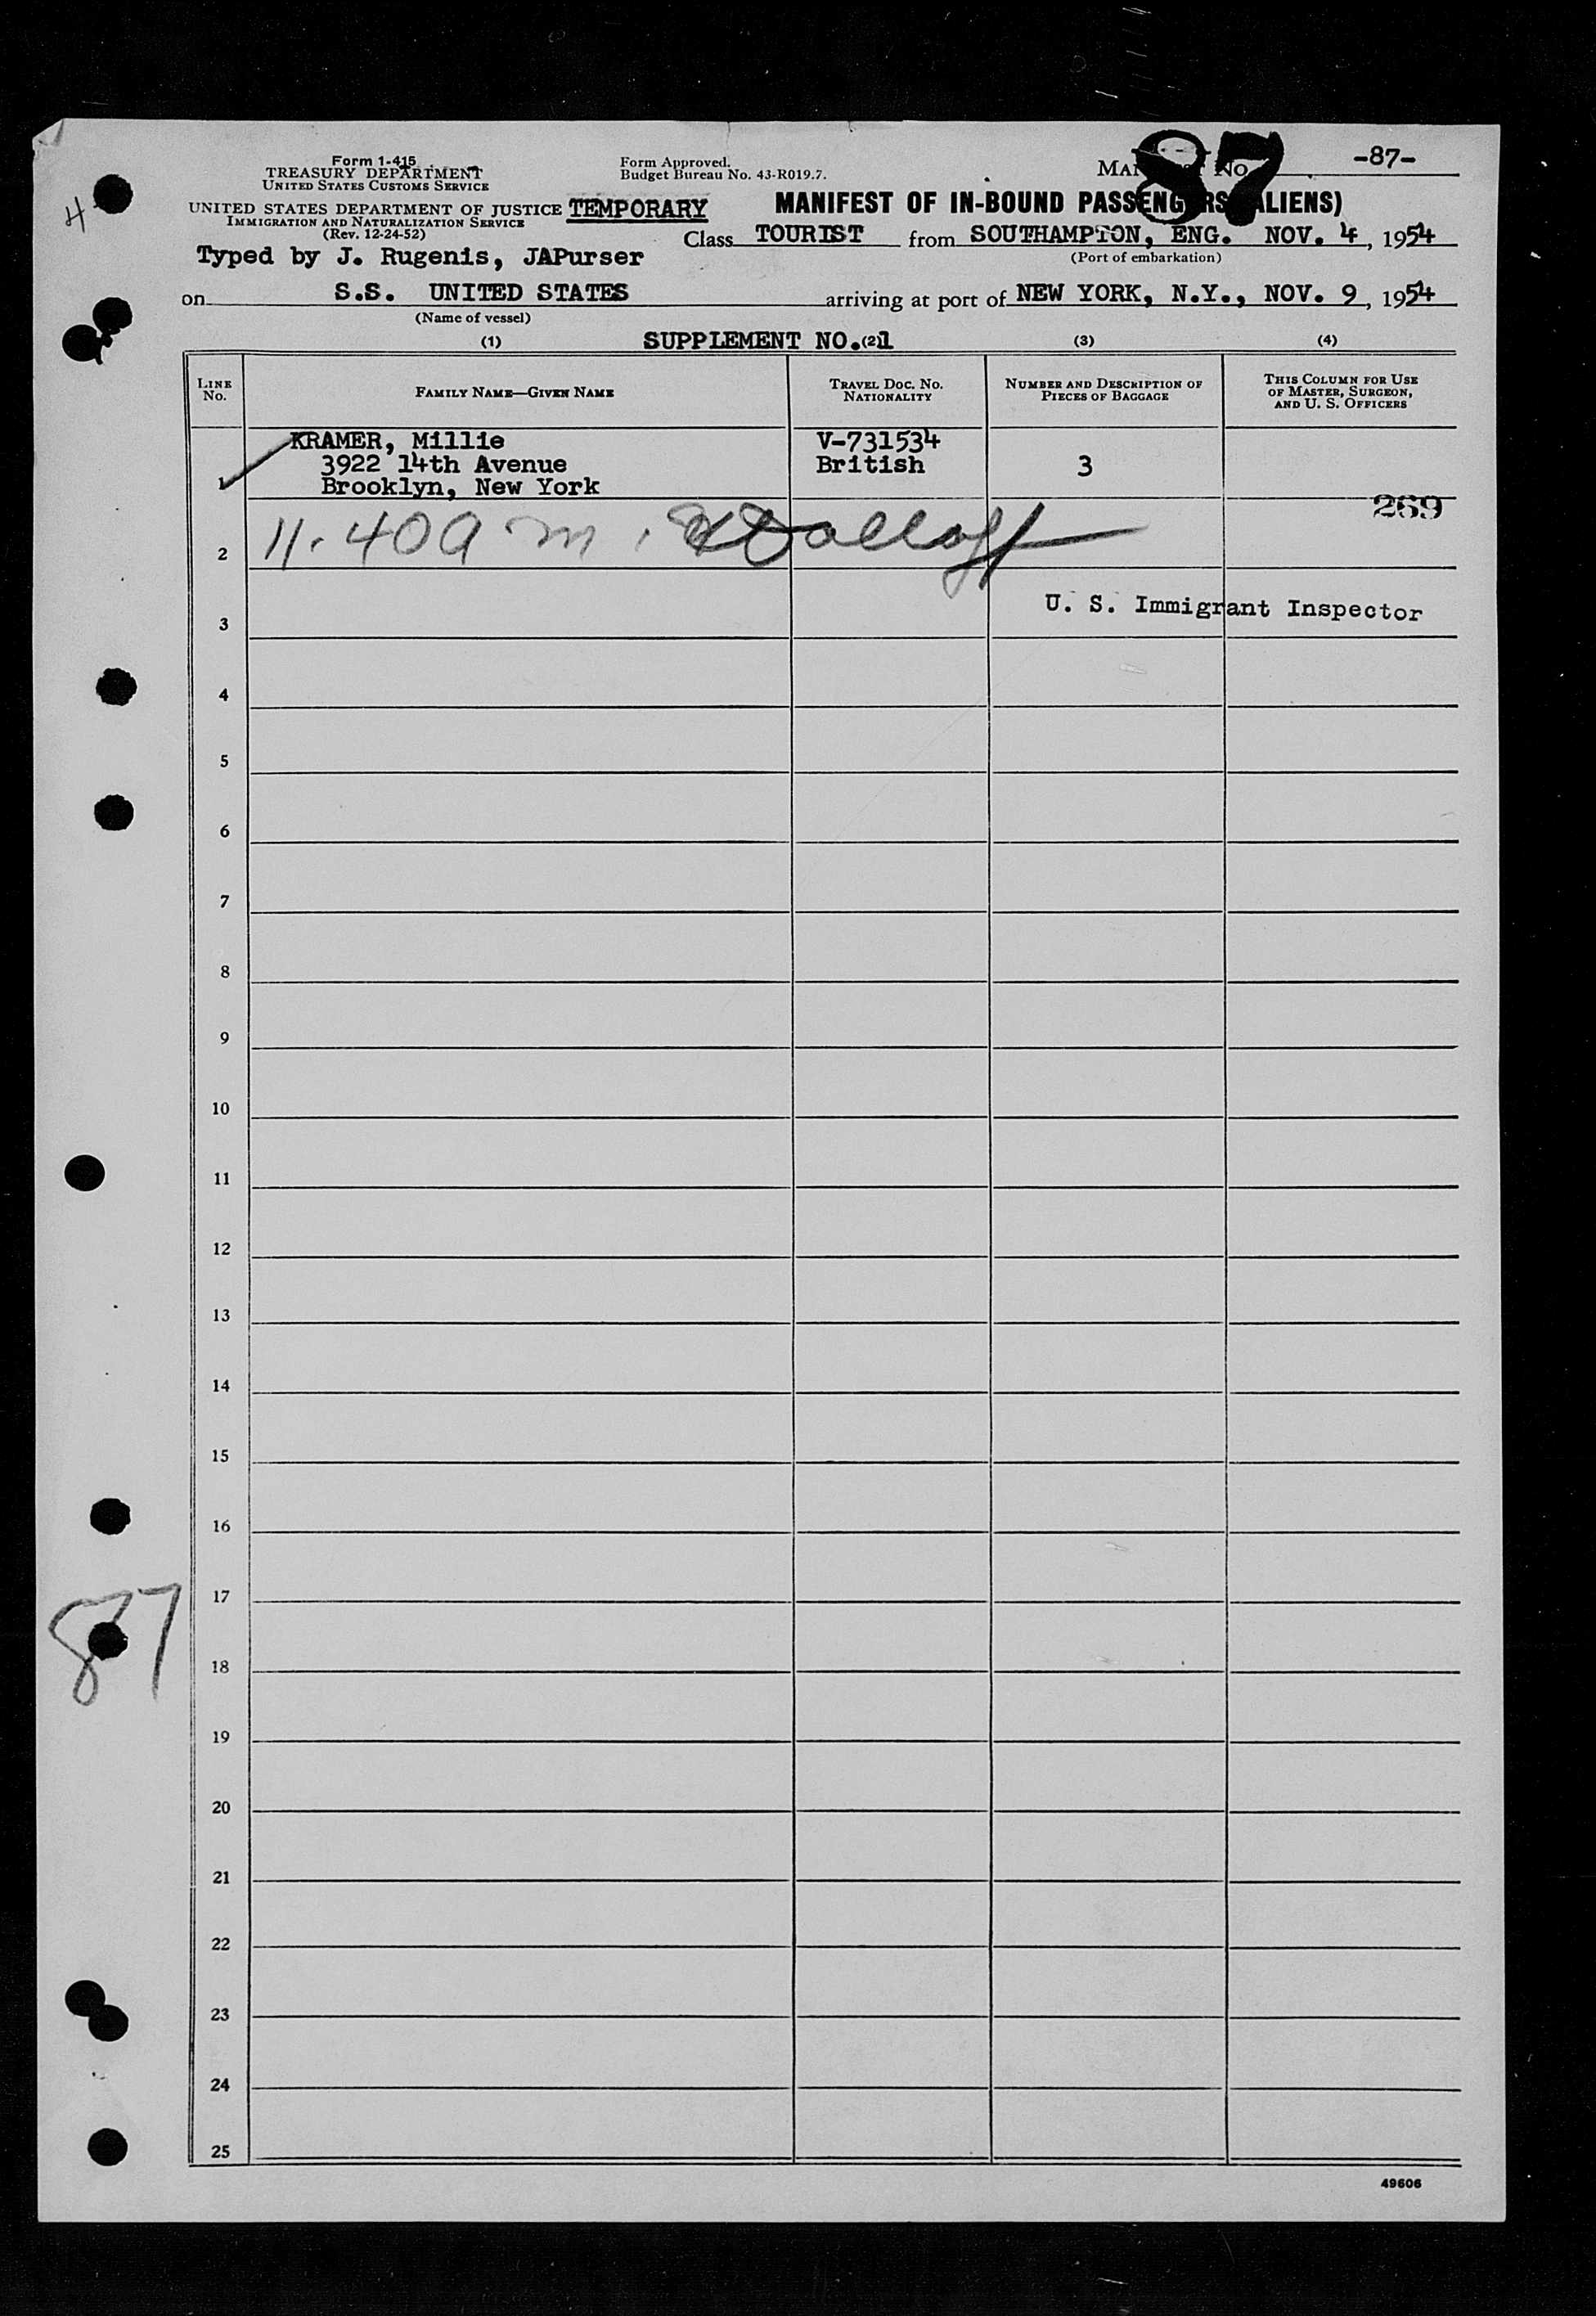 4
Form 1-415
TREASURY DEPARTMENT
UNITED STATES CUSTOMS SERVICE
Form Approved.
Budget Bureau No. 43-R019.7.
No. -87-
87
UNITED STATES DEPARTMENT OF JUSTICE
IMMIGRATION AND NATURALIZATION SERVICE
(Rev. 12-24-52)
TEMPORARY
MANIFEST OF IN-BOUND PASSENGERS (ALIENS)
Class TOURIST from SOUTHAMPTON, ENG. NOV. 4, 1954
(Port of embarkation)
Typed by J. Rugenis, JAPurser
on S.S. UNITED STATES arriving at port of NEW YORK, N.Y., NOV. 9, 1954
(Name of vessel)
(1) SUPPLEMENT NO. (2)1 (3) (4)
LINE No.
FAMILY NAME—GIVEN NAME
TRAVEL DOC. NO. NATIONALITY
NUMBER AND DESCRIPTION OF PIECES OF BAGGAGE
THIS COLUMN FOR USE OF MASTER, SURGEON, AND U. S. OFFICERS
KRAMER, Millie V-731534
3922 14th Avenue British 3
1 Brooklyn, New York
269
2 11.40 a.m.
U. S. Immigrant Inspector
3
4
5
6
7
8
9
10
11
12
13
14
15
16
17
87
18
19
20
21
22
23
24
25
49606